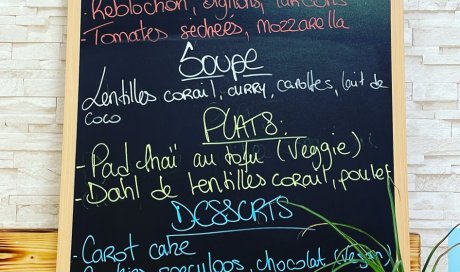 - Reblochon, oignons, lardons
- Tomates séchées, mozzarella
Soupe
Lentilles corail, curry, carottes, lait de
coco
PLATS:
- Pad thaï au tofu (Veggie)
- Dahl de lentilles corail, poulet
DESSERTS
- Carot cake
spéculoos, chocolat (Vegan)